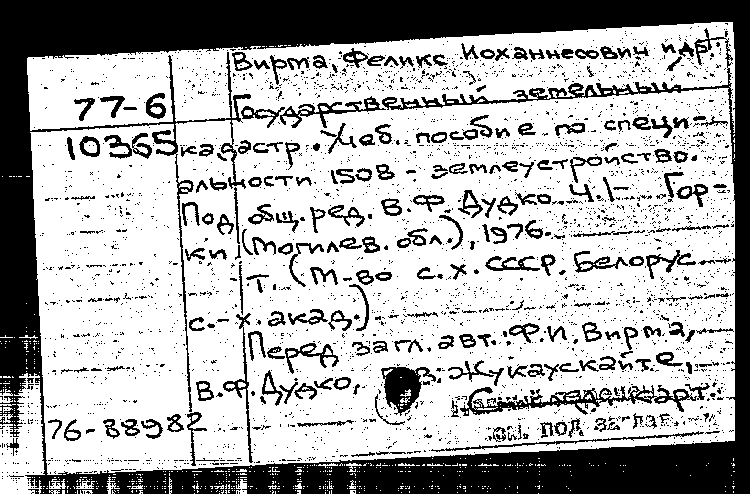 Вирта, Феликс Иоханнесович и др.
77-6 Государственный земельный
10365 кадастр. Учеб. пособие по специ-
альности 1508 - землеустройство.
Под общ. ред. В.Ф. Дудко. Ч. 1- Гор-
ки (Могилев. обл.), 1976.
т. (М-во с.х. СССР. Белорус.
с.-х. акад.)
Перед загл. авт.: Ф.И. Вирта,
В.Ф. Дудко, В. Жукаускайте,
карт.
76-88982 под заглав.